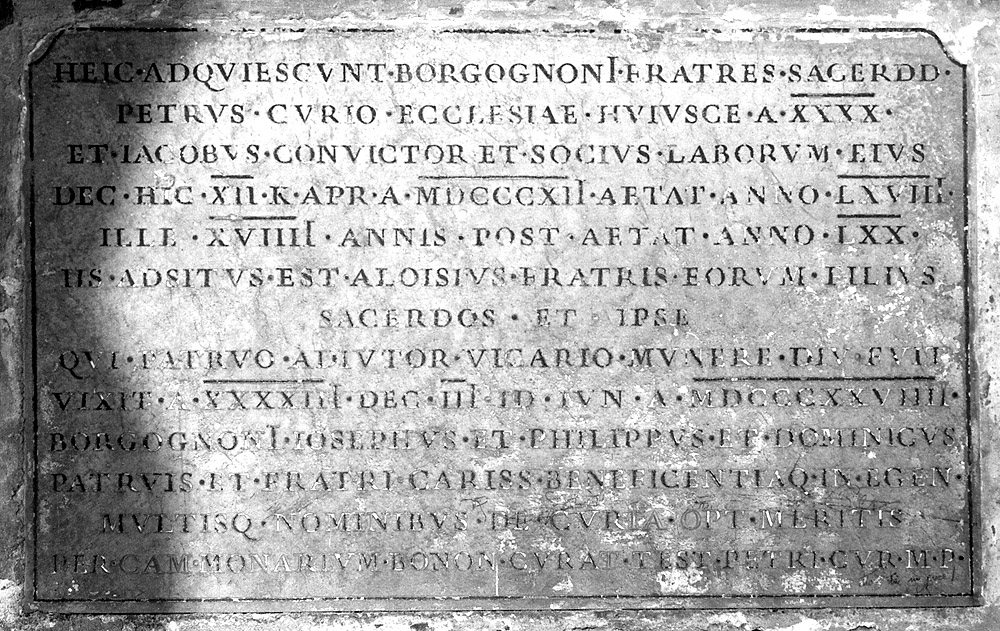 HEIC·ADQVIESCVNT·BORGOGNONI·FRATRES·SACERDD·
PETRVS·CVRIO·ECCLESIAE·HVIVSCE·A·XXXX·
ET·IACOBVS·CONVICTOR ET·SOCIVS·LABORVM·EIVS
DEC·HIC·XII·K·APR·A·MDCCCXII·AETAT·ANNO·LXVIII·
ILLE·XVIIII·ANNIS·POST·AETAT·ANNO·LXX·
IIS·ADSITVS·EST·ALOISIVS·FRATRIS·EORVM·FILIVS
SACERDOS·ET IPSE
QVI·PATRVO·ADIVTOR·VICARIO·MVNERE·DIV·FVIT
VIXIT·A·XXXXIII·DEC·III·ID·IVN·A·MDCCCXXVIIII·
BORGOGNONI·IOSEPHVS·ET·PHILIPPVS·ET·DOMINICVS
PATRVIS·ET·FRATRI·CARISS·BENEFICENTIAQ·IN·EGEN·
MVLTISQ·NOMINIBVS·DE·CVRIA·OPT·MERITIS
PER·CAM·MONARIVM·BONON·CVRAT·TEST·PETRI·CVR·M·P·